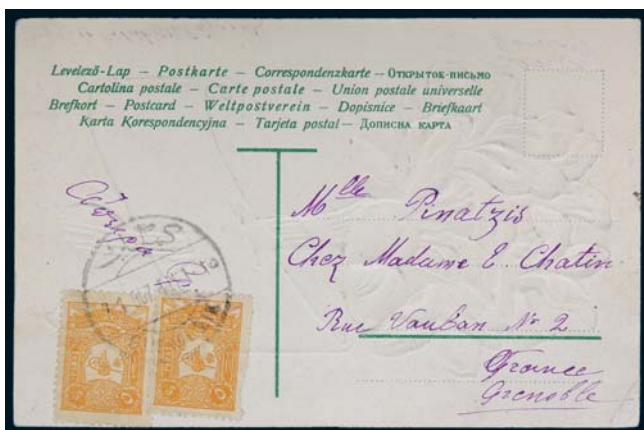 Levelező-Lap – Postkarte – Correspondenzkarte – Открытое-письмо
Cartolina postale – Carte postale – Union postale universelle
Brefkort – Postcard – Weltpostverein – Dopisnice – Briefkaart
Karta Korespondencyjna – Tarjeta postal – Дописна карта
Mlle Pinatzis
Chez Madame E. Chatin
Rue Vauban No 2
France
Grenoble